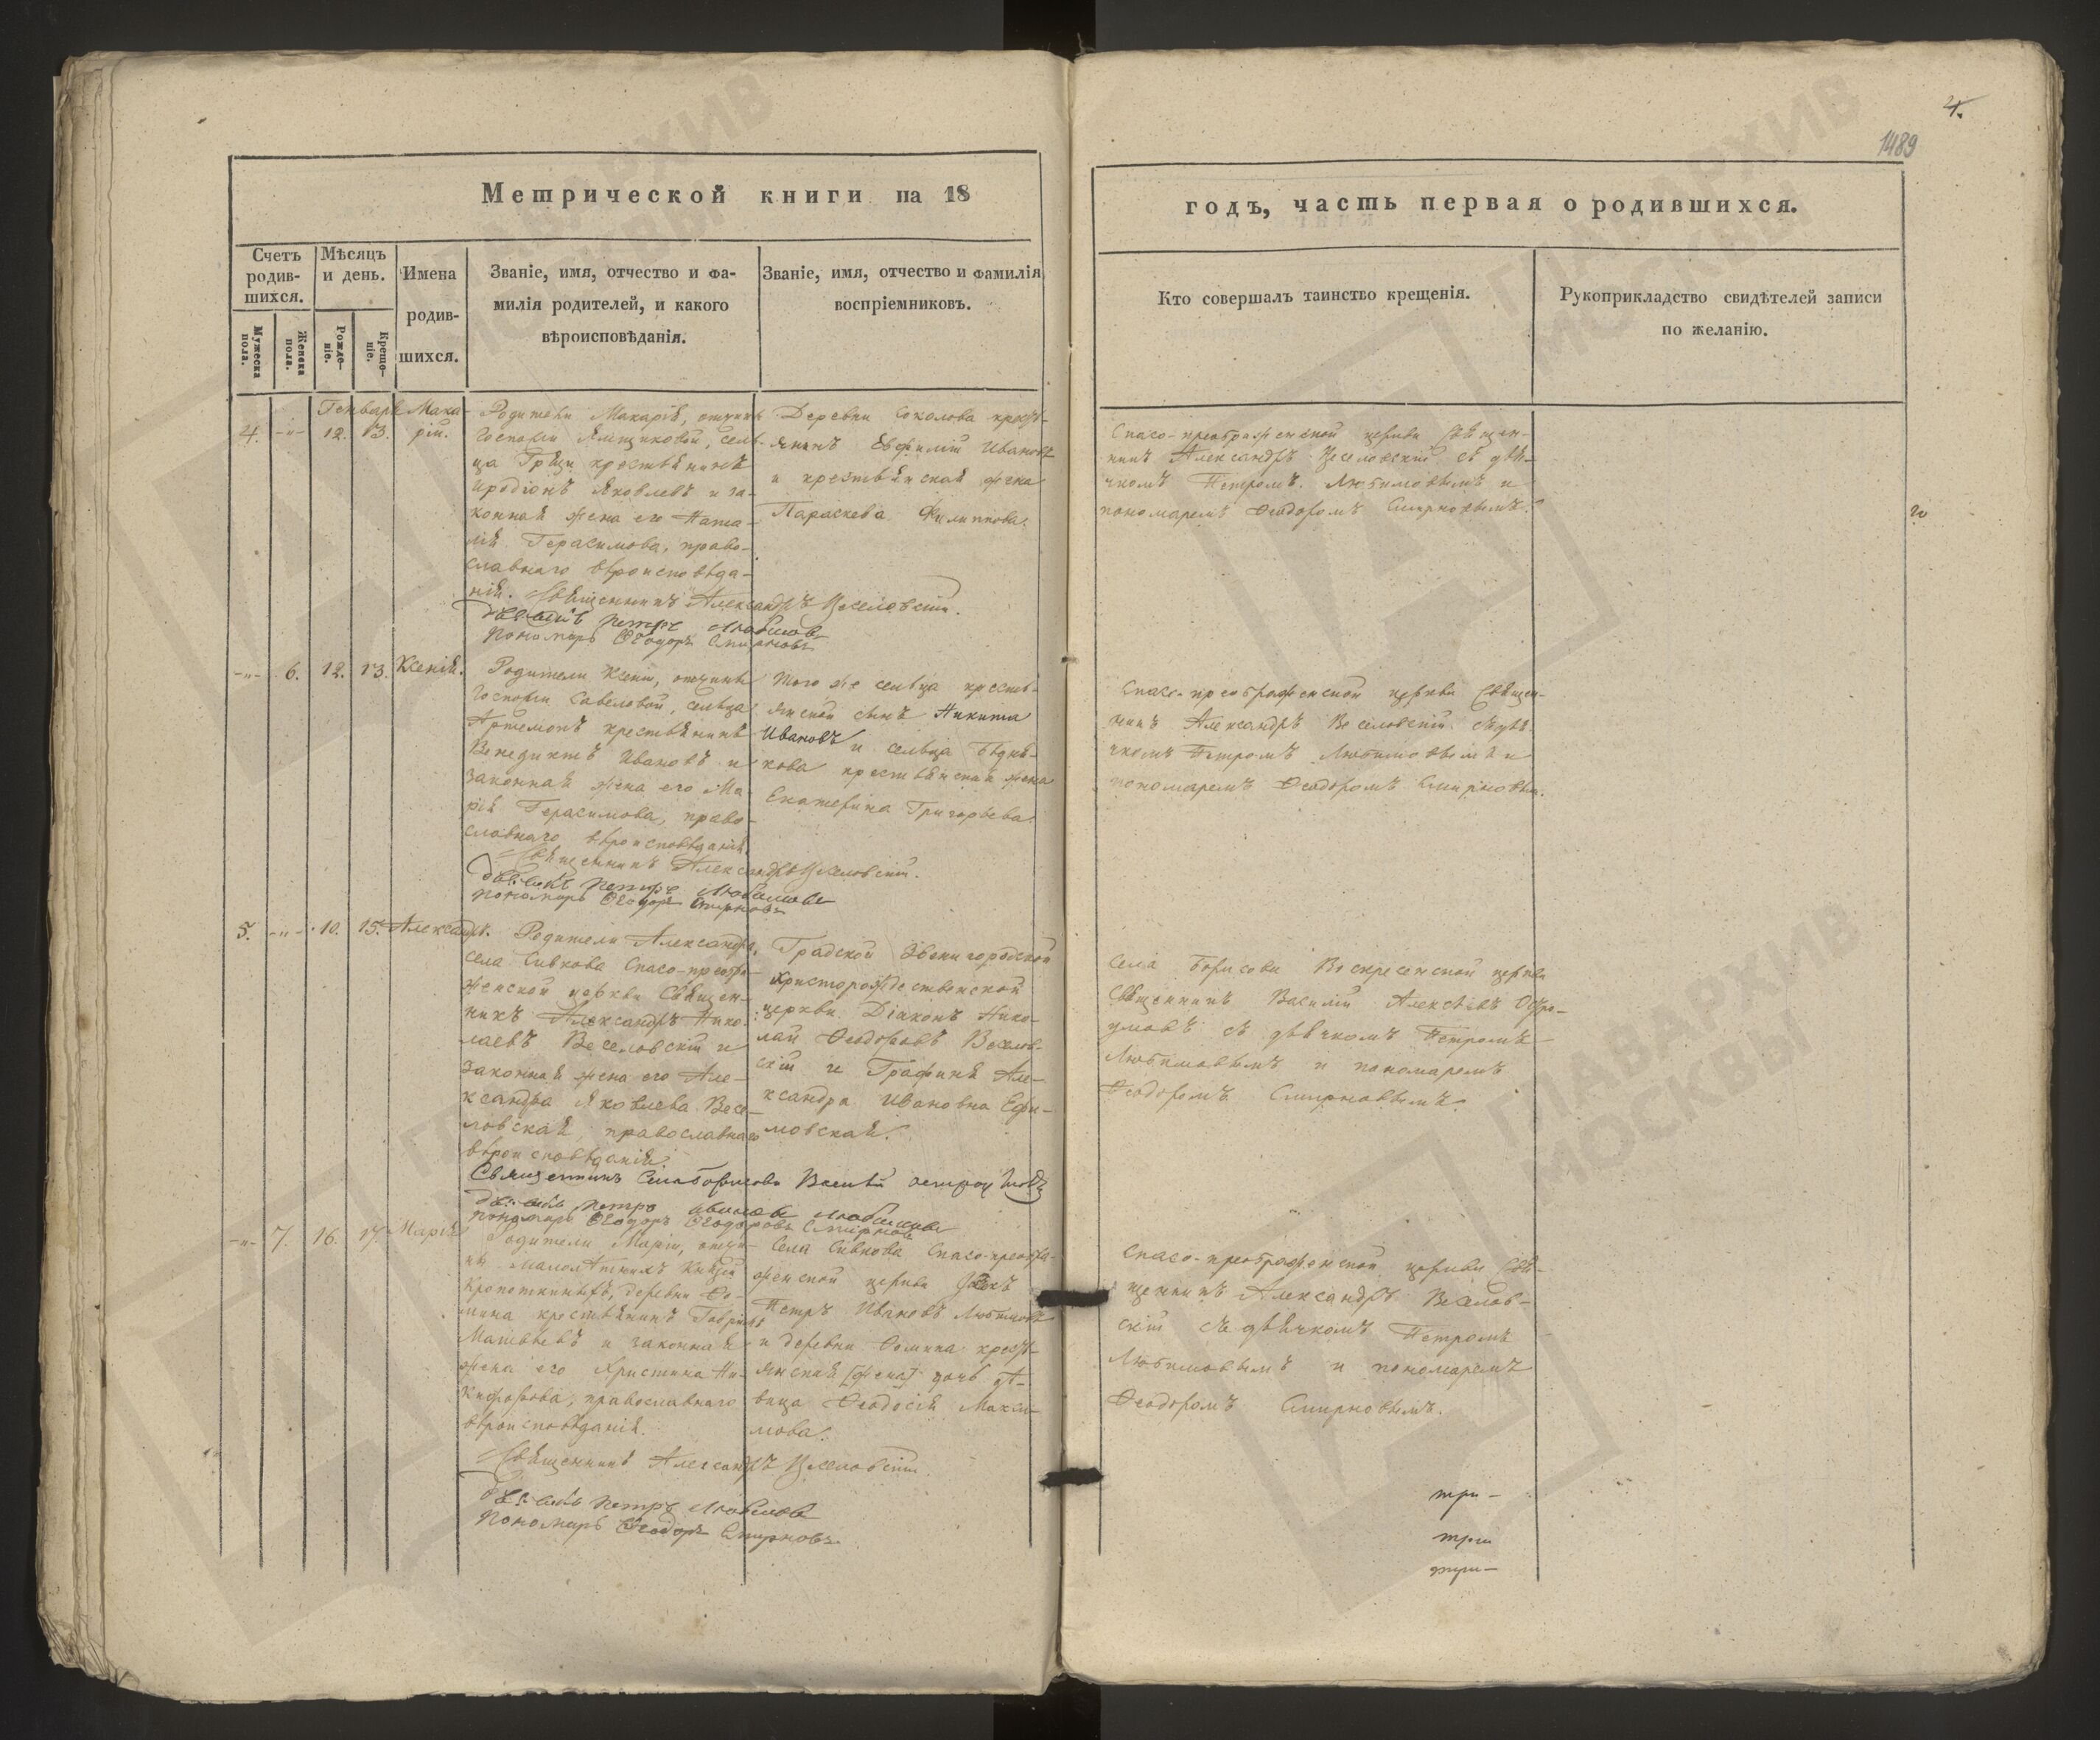 4.
1489
Метрической книги на 18
годъ, часть первая о родившихся.
Счетъ родив-шихся.
Мѣсяцъ и день.
Имена родив-шихся.
Званіе, имя, отчество и фа-
милія родителей, и какого
вѣроисповѣданія.
Званіе, имя, отчество и фамилія
воспріемниковъ.
Кто совершалъ таинство крещенія.
Рукоприкладство свидѣтелей записи
по желанію.
Мужеска пола.
Женска пола.
Рожде-ніе.
Креще-ніе.
Генваря
4. -"- 12. 13. Мака-
рій.
Родители Макарія, отчины
Госпожи Ямщиковой, сель-
ца Грязи крестьянинъ
Иродіонъ Яковлевъ и за-
конная жена его Ната-
лія Герасимова, право-
славнаго вѣроисповѣда-
нія. Священникъ Александръ Веселовскій.
Дьячекъ Петръ Любимовъ
Пономарь Ѳеодоръ Смирновъ
Деревни Соколова кресть-
янинъ Евфимій Ивановъ
и крестьянская жена
Параскева Филиппова.
Спасо-преображенской церкви Священ-
никъ Александръ Веселовскій съ дья-
чкомъ Петромъ Любимовымъ и
пономаремъ Ѳеодоромъ Смирновымъ.
-"- 6. 12. 13. Ксенія.
Родители Ксеніи, отчины
Госпожи Савеловой, сельца
Артемонъ крестьянинъ
Венедиктъ Ивановъ и
законная жена его Ма-
рія Герасимова, право-
славнаго вѣроисповѣданія.
Священникъ Александръ Веселовскій.
Дьячекъ Петръ Любимовъ
Пономарь Ѳеодоръ Смирновъ
Того же сельца кресть-
янской сынъ Никита
Ивановъ и сельца Бѣдня-
кова крестьянская жена
Екатерина Григорьева.
Спасо-преображенской церкви Священ-
никъ Александръ Веселовскій съ дья-
чкомъ Петромъ Любимовымъ и
пономаремъ Ѳеодоромъ Смирновым.
5. -"- 10. 15. Александръ.
Родители Александра,
села Сивкова Спасо-преобра-
женской церкви Священ-
никъ Александръ Нико-
лаевъ Веселовскій и
законная жена его Але-
ксандра Яковлева Весе-
ловская, православнаго
вѣроисповѣданія.
Священникъ Села Борисова Василій Остроумовъ
Дьячекъ Петръ Ивановъ Любимовъ
Пономарь Ѳеодоръ Ѳеодоровъ Смирновъ
Градской Звенигородской
Христорождественской
церкви Діаконъ Нико-
лай Ѳеодоровъ Веселов-
скій и Графиня Але-
ксандра Ивановна Ефи-
мовская.
Села Борисова Воскресенской церкви
Священникъ Василій Алексѣевъ Остро-
умовъ съ дьячкомъ Петромъ
Любимовымъ и пономаремъ
Ѳеодоромъ Смирновымъ.
-"- 7. 16. 17. Марія
Родители Маріи, отчи-
ны малолѣтнихъ Князей
Кропоткиныхъ, деревни Ѳо-
мина крестьянинъ Гавріилъ
Матвѣевъ и законная
жена его Христина Ни-
кифорова, православнаго
вѣроисповѣданія.
Священникъ Александръ Веселовскій.
Дьячекъ Петръ Любимовъ
Пономарь Ѳеодоръ Смирновъ
Села Сивкова Спасо-преобра-
женской церкви Дьячекъ
Петръ Ивановъ Любимовъ
и деревни Ѳомина кресть-
янская [жена] дочь дѣ-
вица Ѳеодосія Макси-
мова.
Спасо-преображенской церкви Свя-
щенникъ Александръ Веселов-
скій съ дьячкомъ Петромъ
Любимовымъ и пономаремъ
Ѳеодоромъ Смирновымъ.
три-
три
три-
ГЛАВАРХИВ
МОСКВЫ